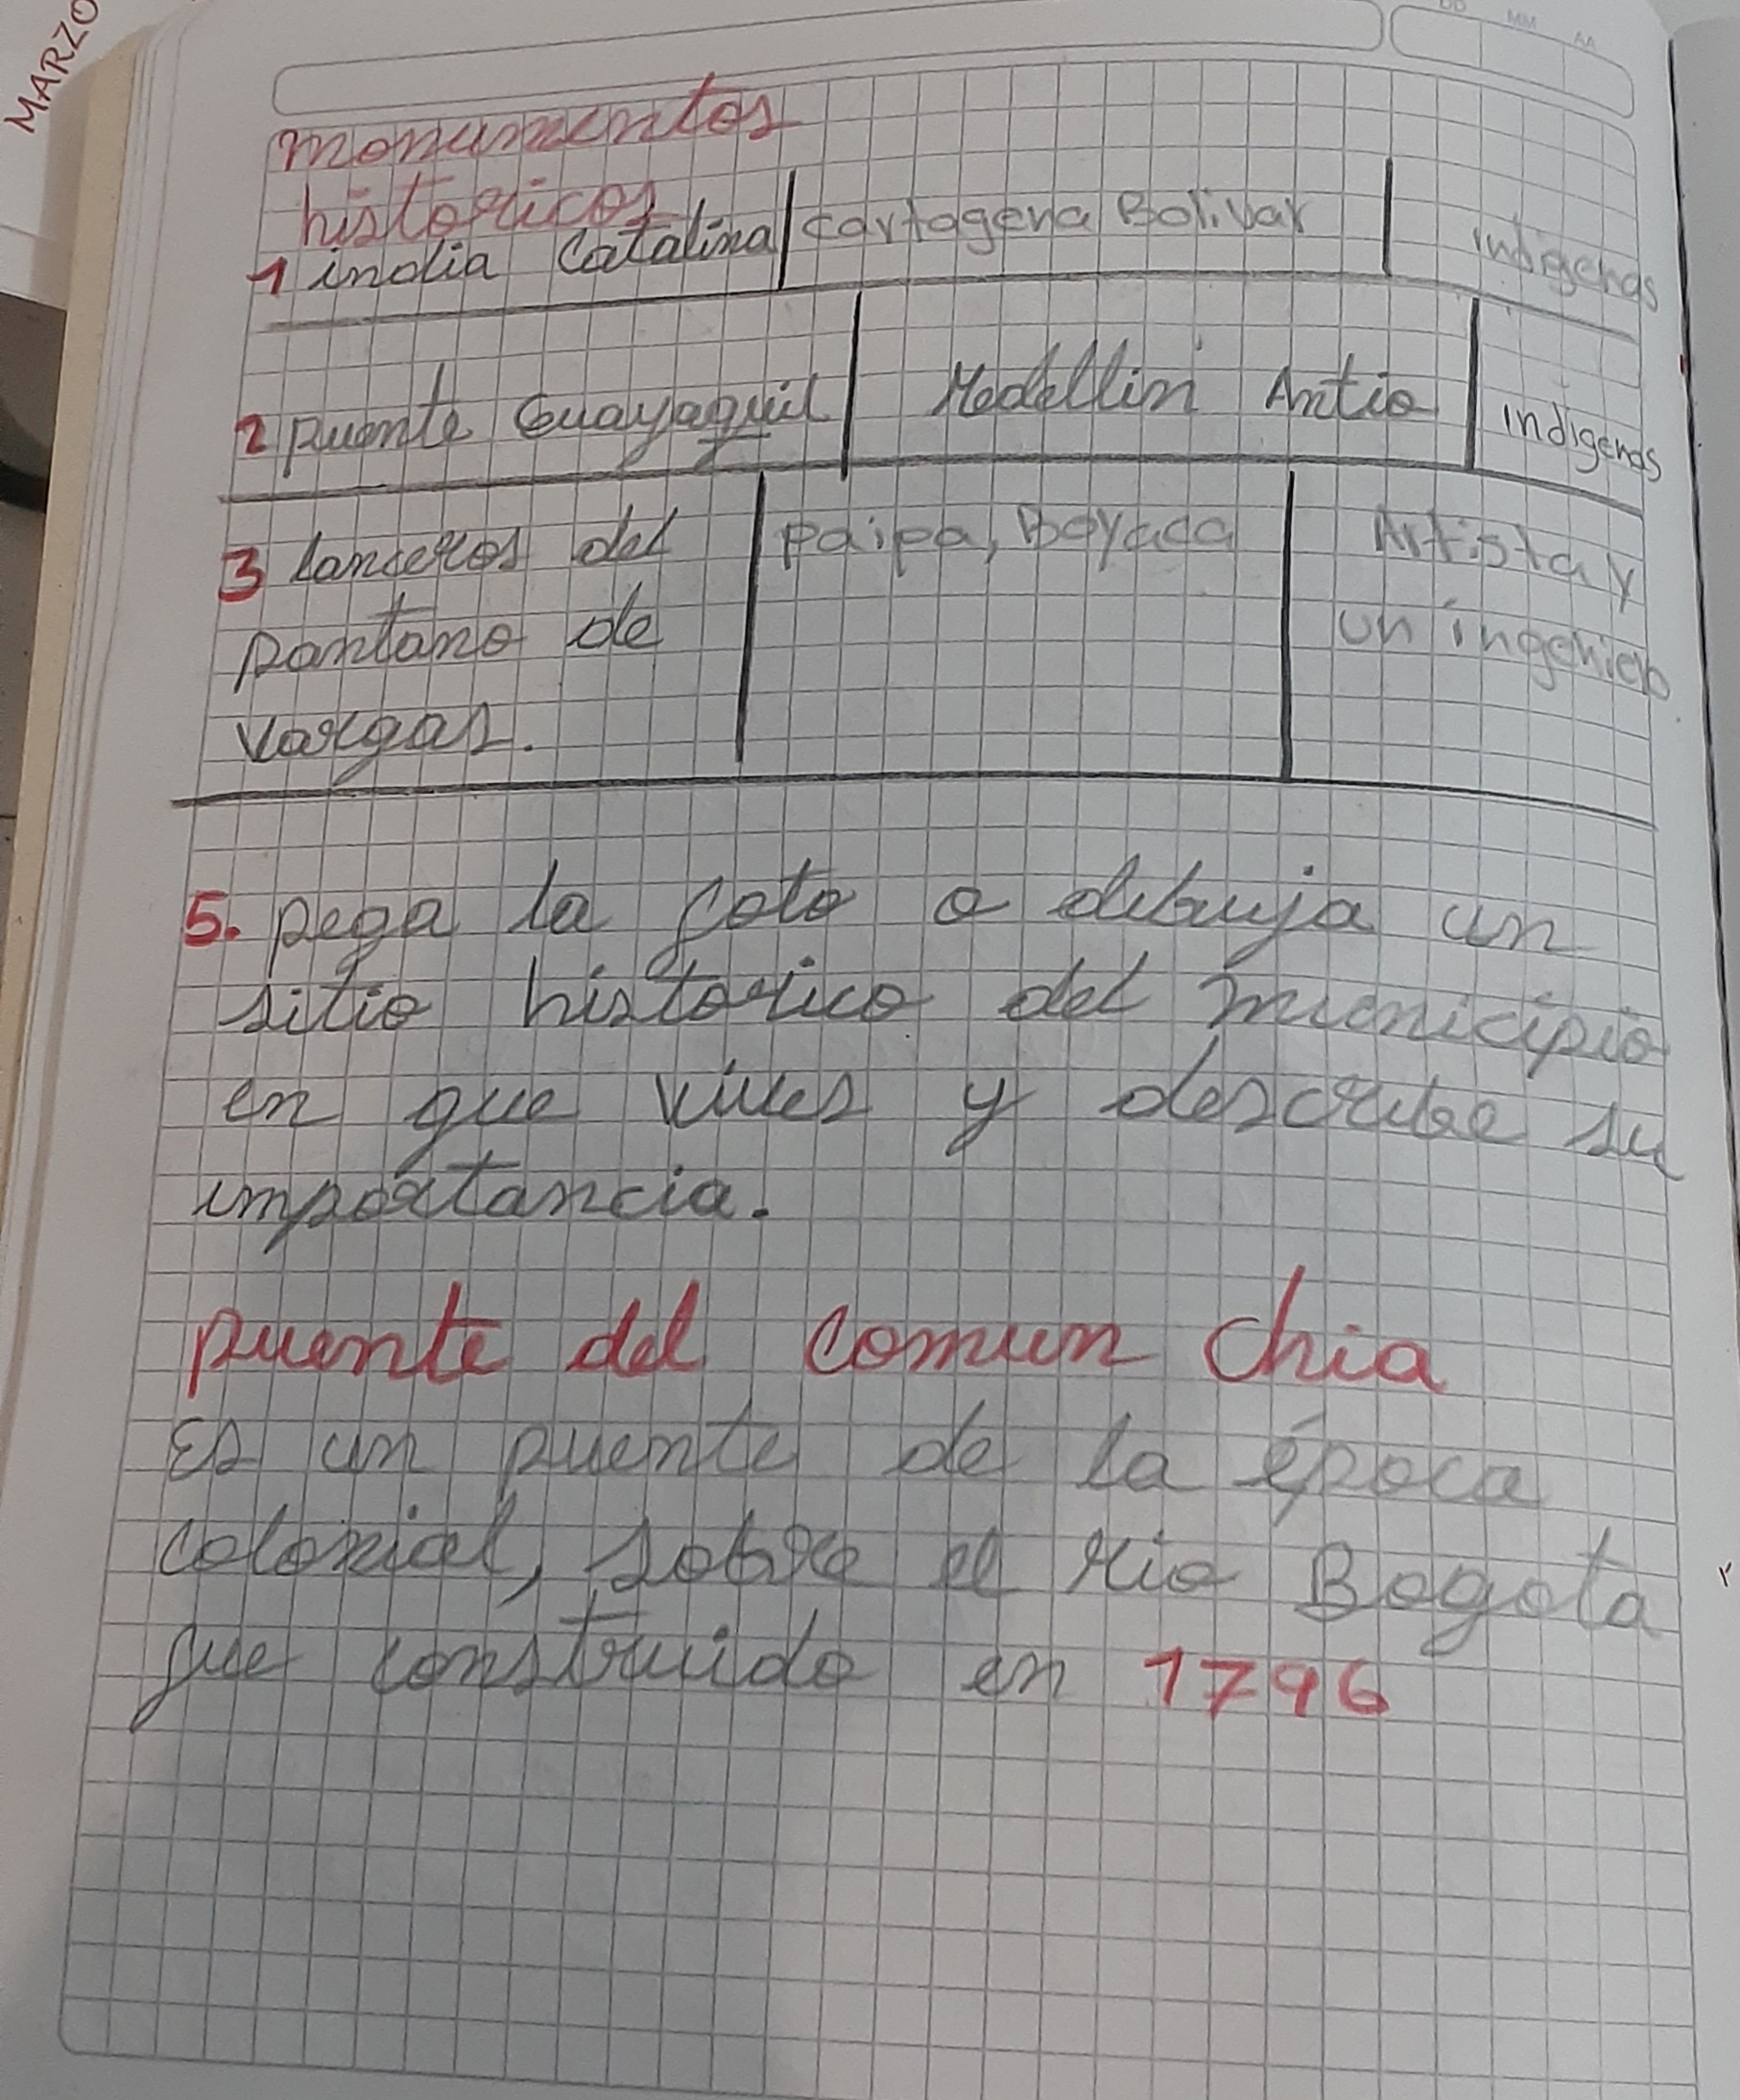 MARZO
DD MM AA
monumentos
historicos
1 india Catalina | cartagena Bolivar | indigenas
2 puente Guayaquil | Medellin Antio | indigenas
3 lanceros del | Paipa, Boyaca | Artista y
pantano de | un ingeniero
vargas.
5. pega la foto o dibuja un
sitio historico del municipio
en que vives y describe su
importancia.
puente del comun chia
Es un puente de la época
colonial, sobre el rio Bogota
fue construido en 1796